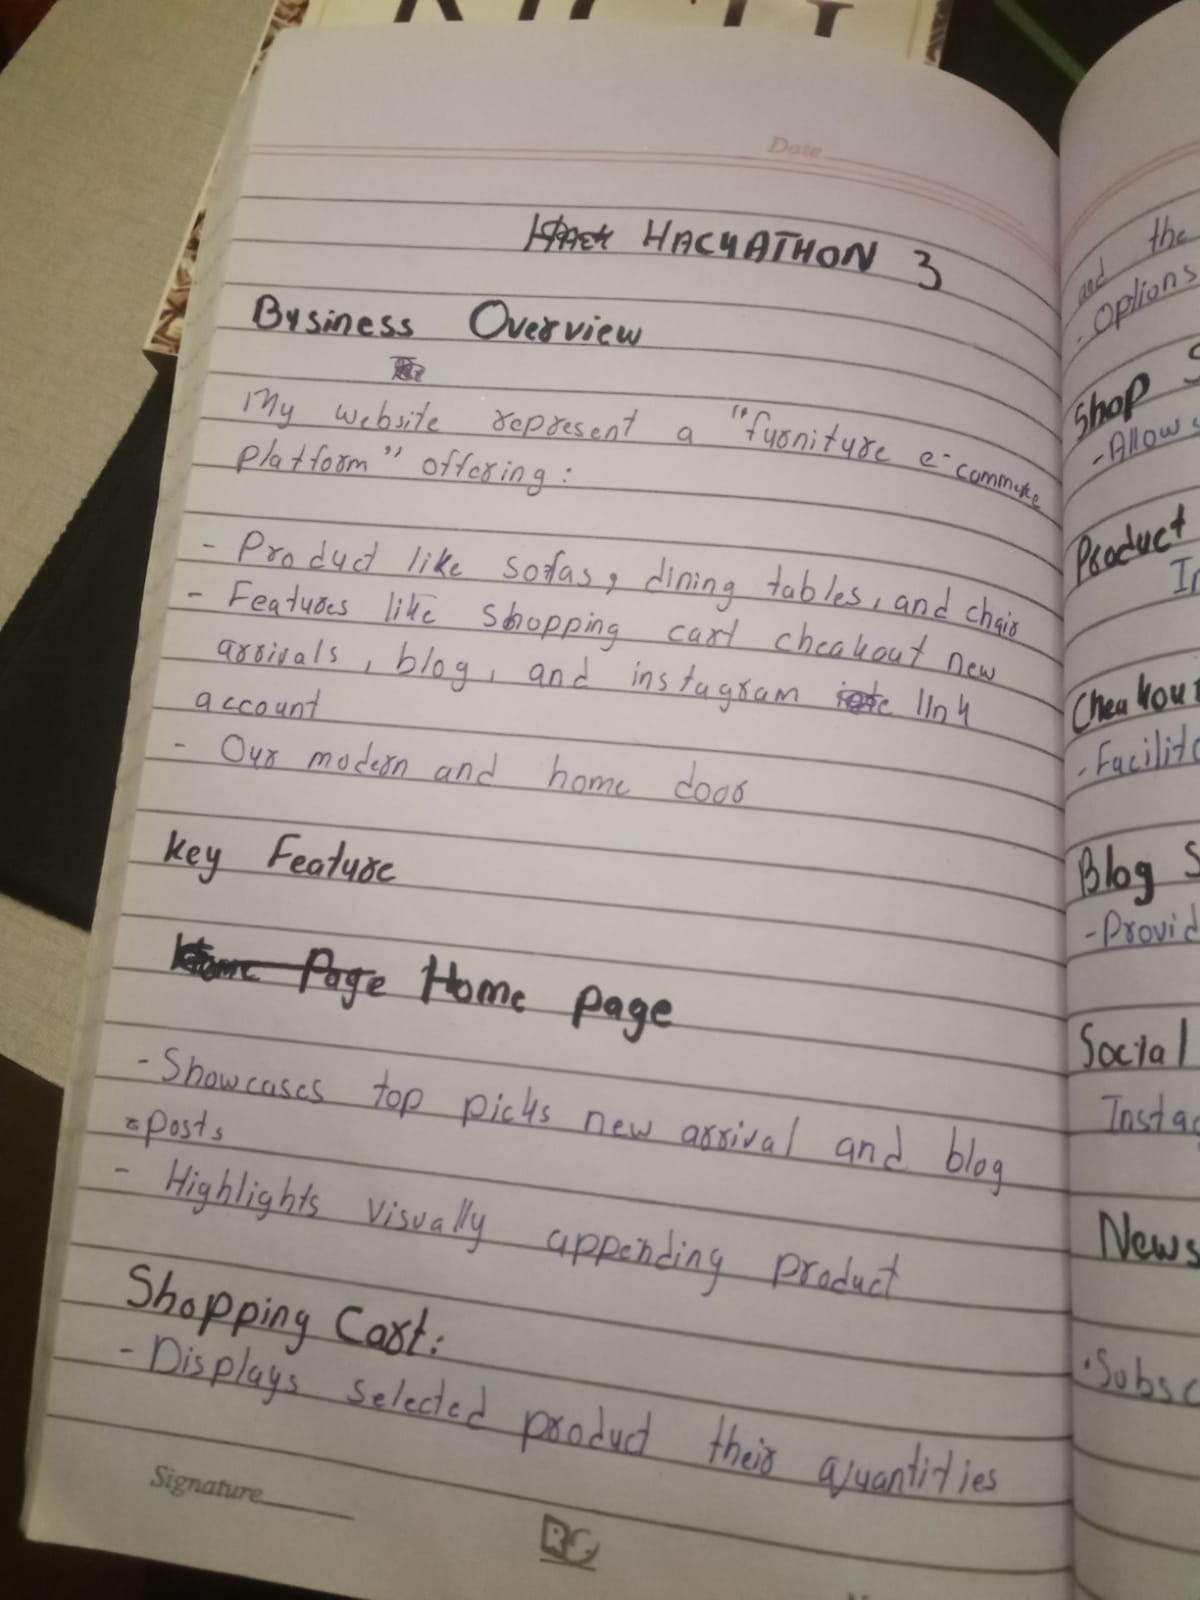 Date
HACKATHON 3
Business Overview
My website represent a "furniture e-commerce
platform" offering:
- Product like sofas, dining tables, and chair
- Features like shopping cart cheakout new
arrivals, blog, and instagram link
account
- Our modern and home door
Key Feature
Home Page Home page
- Showcases top picks new arrival and blog
posts
- Highlights visually appending product
Shopping Cart:
- Displays selected product their quantities
Signature
RC
and the
Options
Shop S
- Allow
Product
In
Cheakout
- Facilita
Blog S
- Provid
Social
Instag
News
Subsc